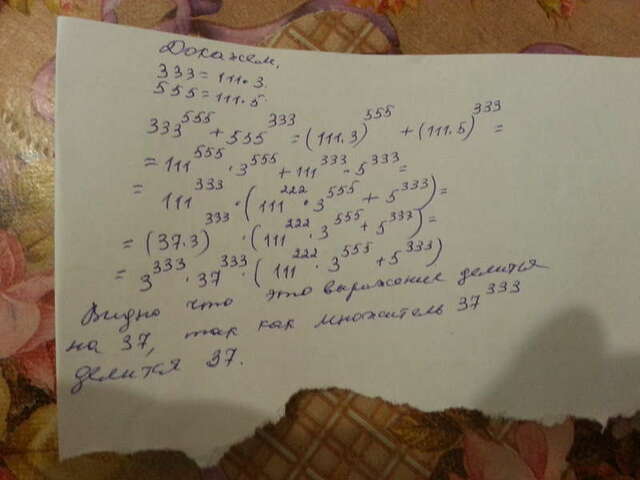 Докажем,
333 = 111·3.
555 = 111·5.
333⁵⁵⁵ + 555³³³ = (111·3)⁵⁵⁵ + (111·5)³³³ =
= 111⁵⁵⁵ · 3⁵⁵⁵ + 111³³³ · 5³³³ =
= 111³³³ · (111²²² · 3⁵⁵⁵ + 5³³³) =
= (37·3)³³³ · (111²²² · 3⁵⁵⁵ + 5³³³) =
= 3³³³ · 37³³³ · (111²²² · 3⁵⁵⁵ + 5³³³)
Видно что это выражение делится
на 37, так как множитель 37³³³
делится 37.